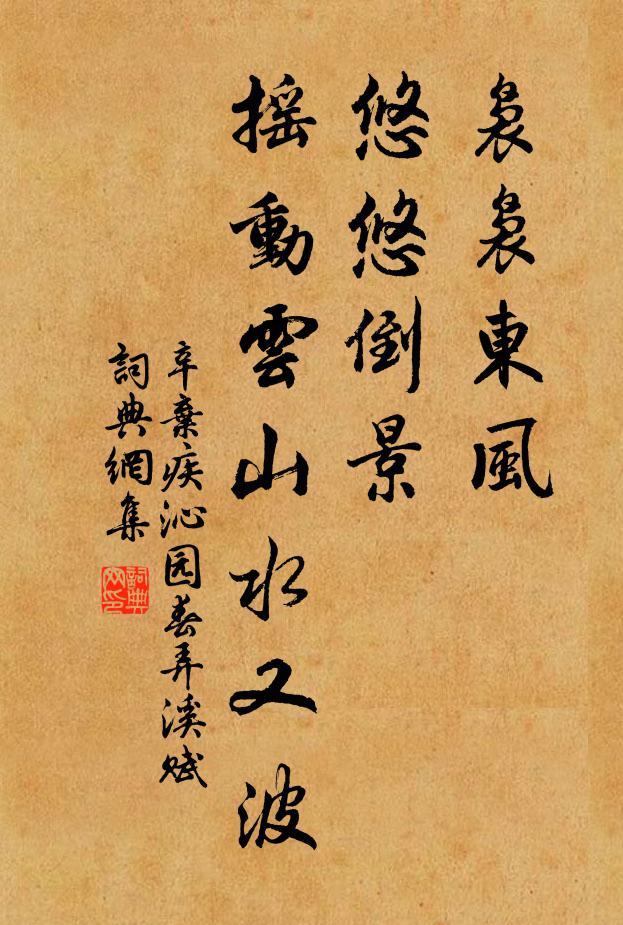 袅袅東風
悠悠倒景
摇動雲山水又波
辛棄疾沁园春弄溪赋
詞典網集
詞典网印